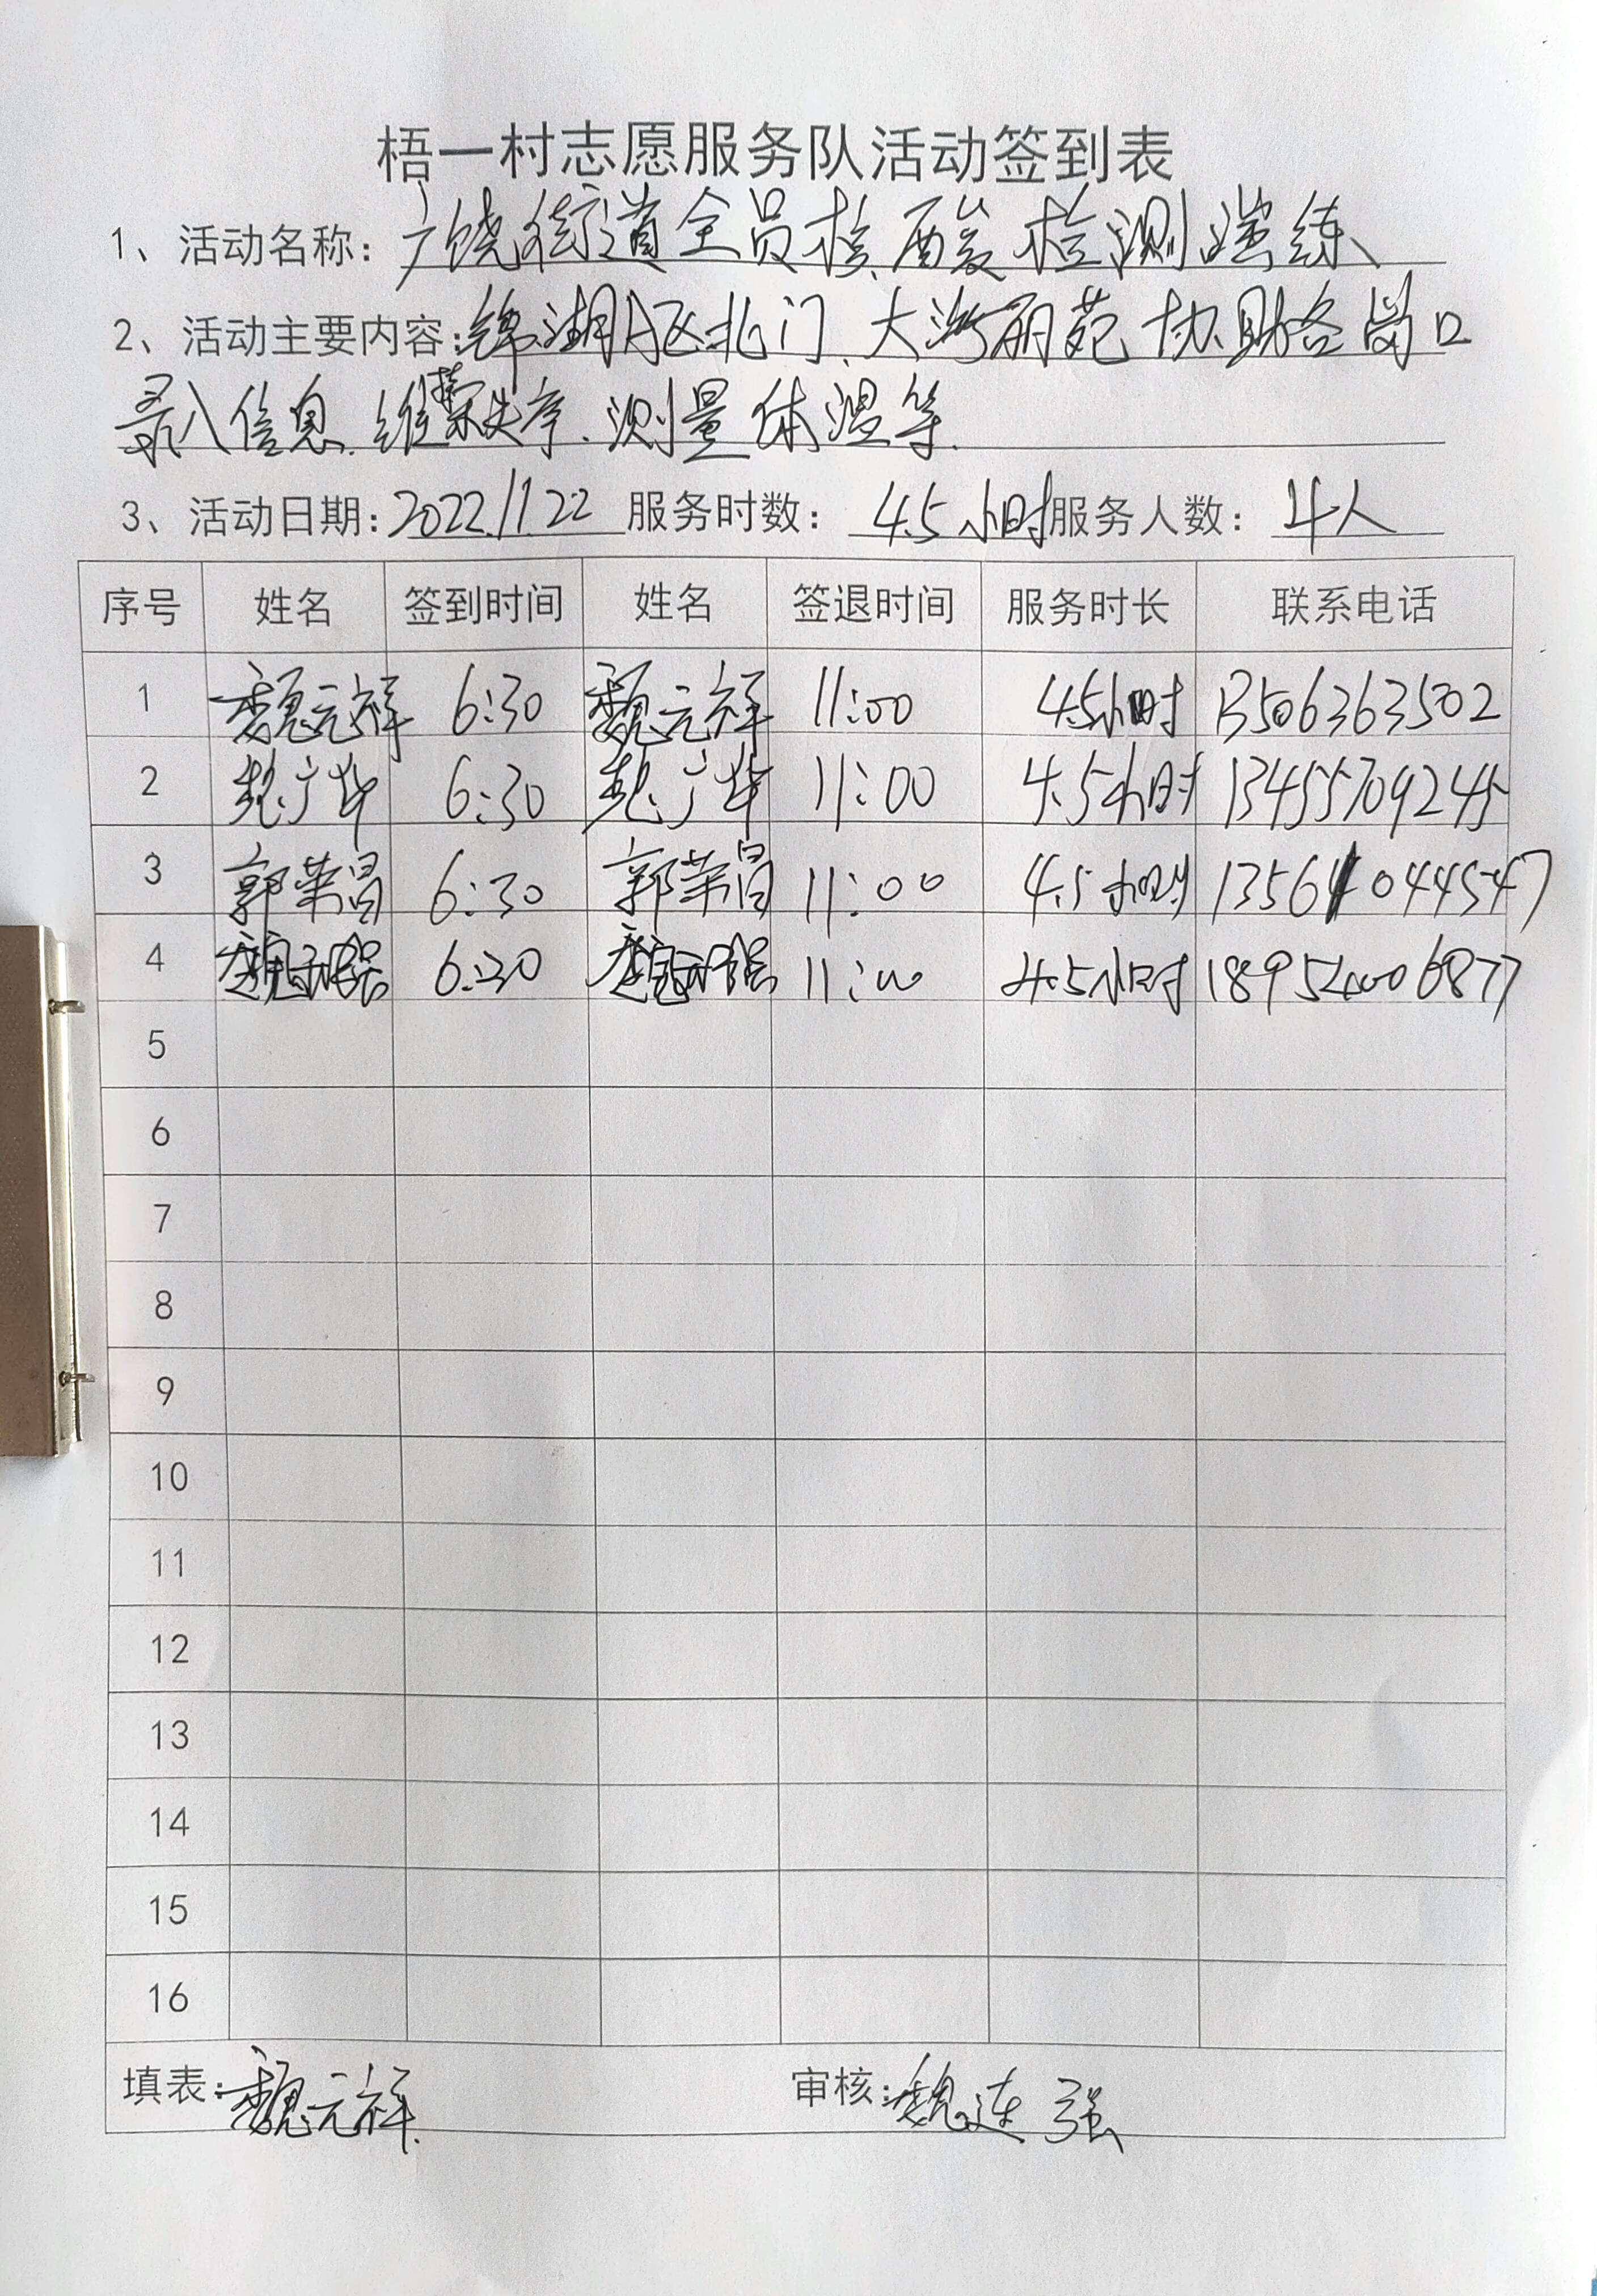 梧一村志愿服务队活动签到表
1、活动名称：广饶街道全员核酸检测演练
2、活动主要内容：锦湖A区北门、大海丽苑协助各岗口
录入信息、维持秩序、测量体温等.
3、活动日期：2022.1.22 服务时数：4.5小时 服务人数：4人
序号 姓名 签到时间 姓名 签退时间 服务时长 联系电话
1 魏元祥 6:30 魏元祥 11:00 4.5小时 13506363502
2 广华 6:30 广华 11:00 4.5小时 13455709245
3 郭荣昌 6:30 郭荣昌 11:00 4.5小时
4 6:30 11:00 4.5小时 18954006877
5
6
7
8
9
10
11
12
13
14
15
16
填表：魏元祥 审核：魏连强